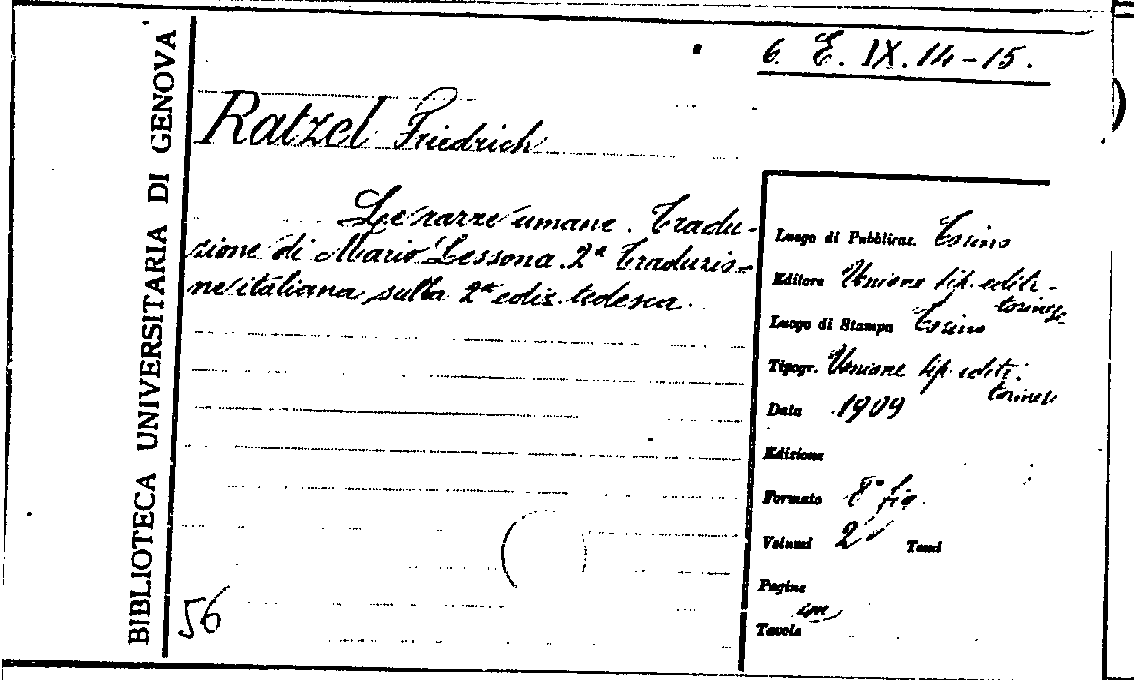 BIBLIOTECA UNIVERSITARIA DI GENOVA
6. E. IX. 14-15.
Ratzel Friedrich
Le razze umane. Tradu-
zione di Mario Lessona. 2ª Traduzio=
ne italiana sulla 2ª ediz. tedesca.
Luogo di Pubblicaz. Torino
Editore Unione tip. editr.
torinese
Luogo di Stampa Torino
Tipogr. Unione tip. editr.
torinese
Data 1909
Edizione
Formato 8° fig.
Volumi 2 Tomi
Pagine
Tavole
56